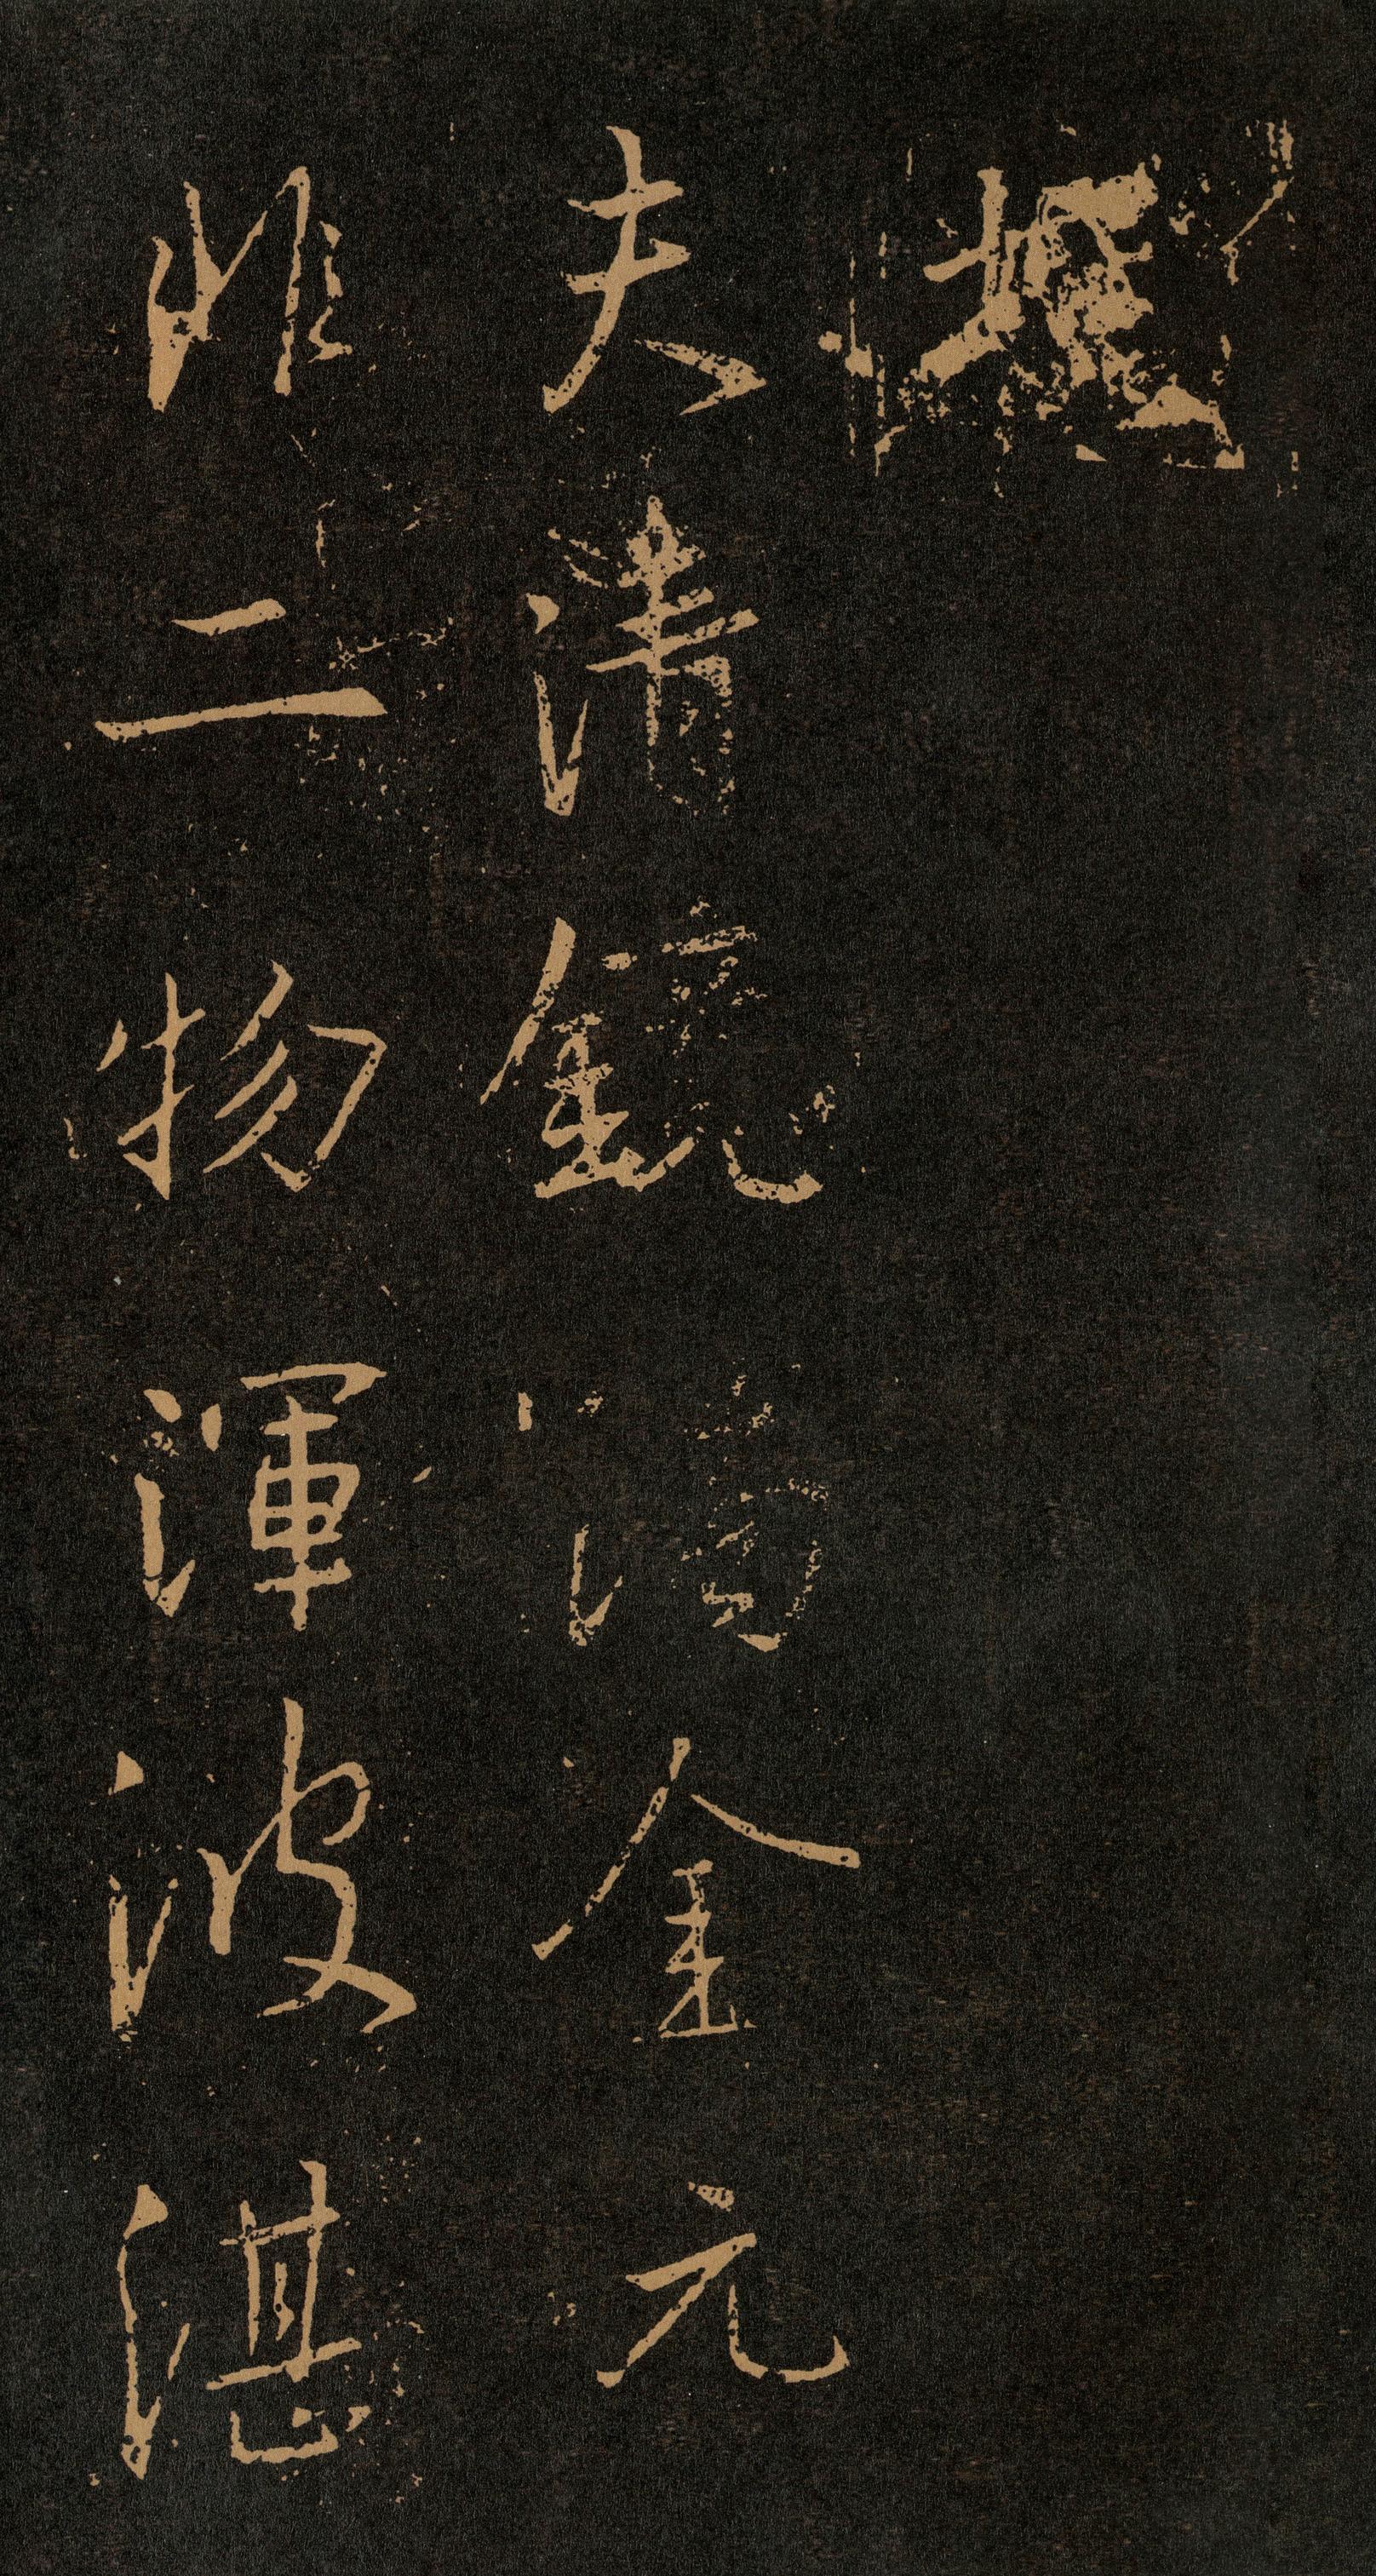 撰
夫清鏡金元
非二物渾波湛